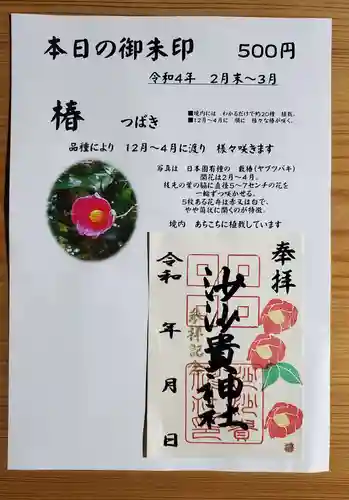 本日の御朱印　500円
令和4年　2月末～3月
椿　つばき
■境内には　わかるだけで約20種　植栽。
■12月～4月に　順に　様々な椿が咲く。
品種により　12月～4月に渡り　様々咲きます
写真は　日本固有種の　藪椿(ヤブツバキ)
開花は2月～4月。
枝先の葉の脇に直径5～7センチの花を
一輪ずつ咲かせる。
5枚ある花弁は赤又は白で、
やや筒状に開くのが特徴。
境内　あちこちに植栽しています
奉拝
沙沙貴神社
参拝記念
令和　年　月　日